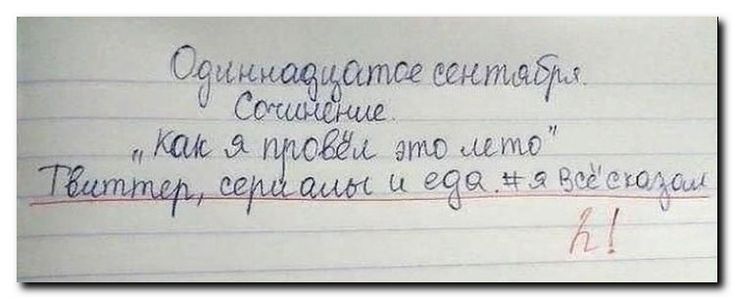 Одиннадцатое сентября.
Сочинение.
„Как я провёл это лето”
Твиттер, сериалы и еда. #я всё сказал
2!